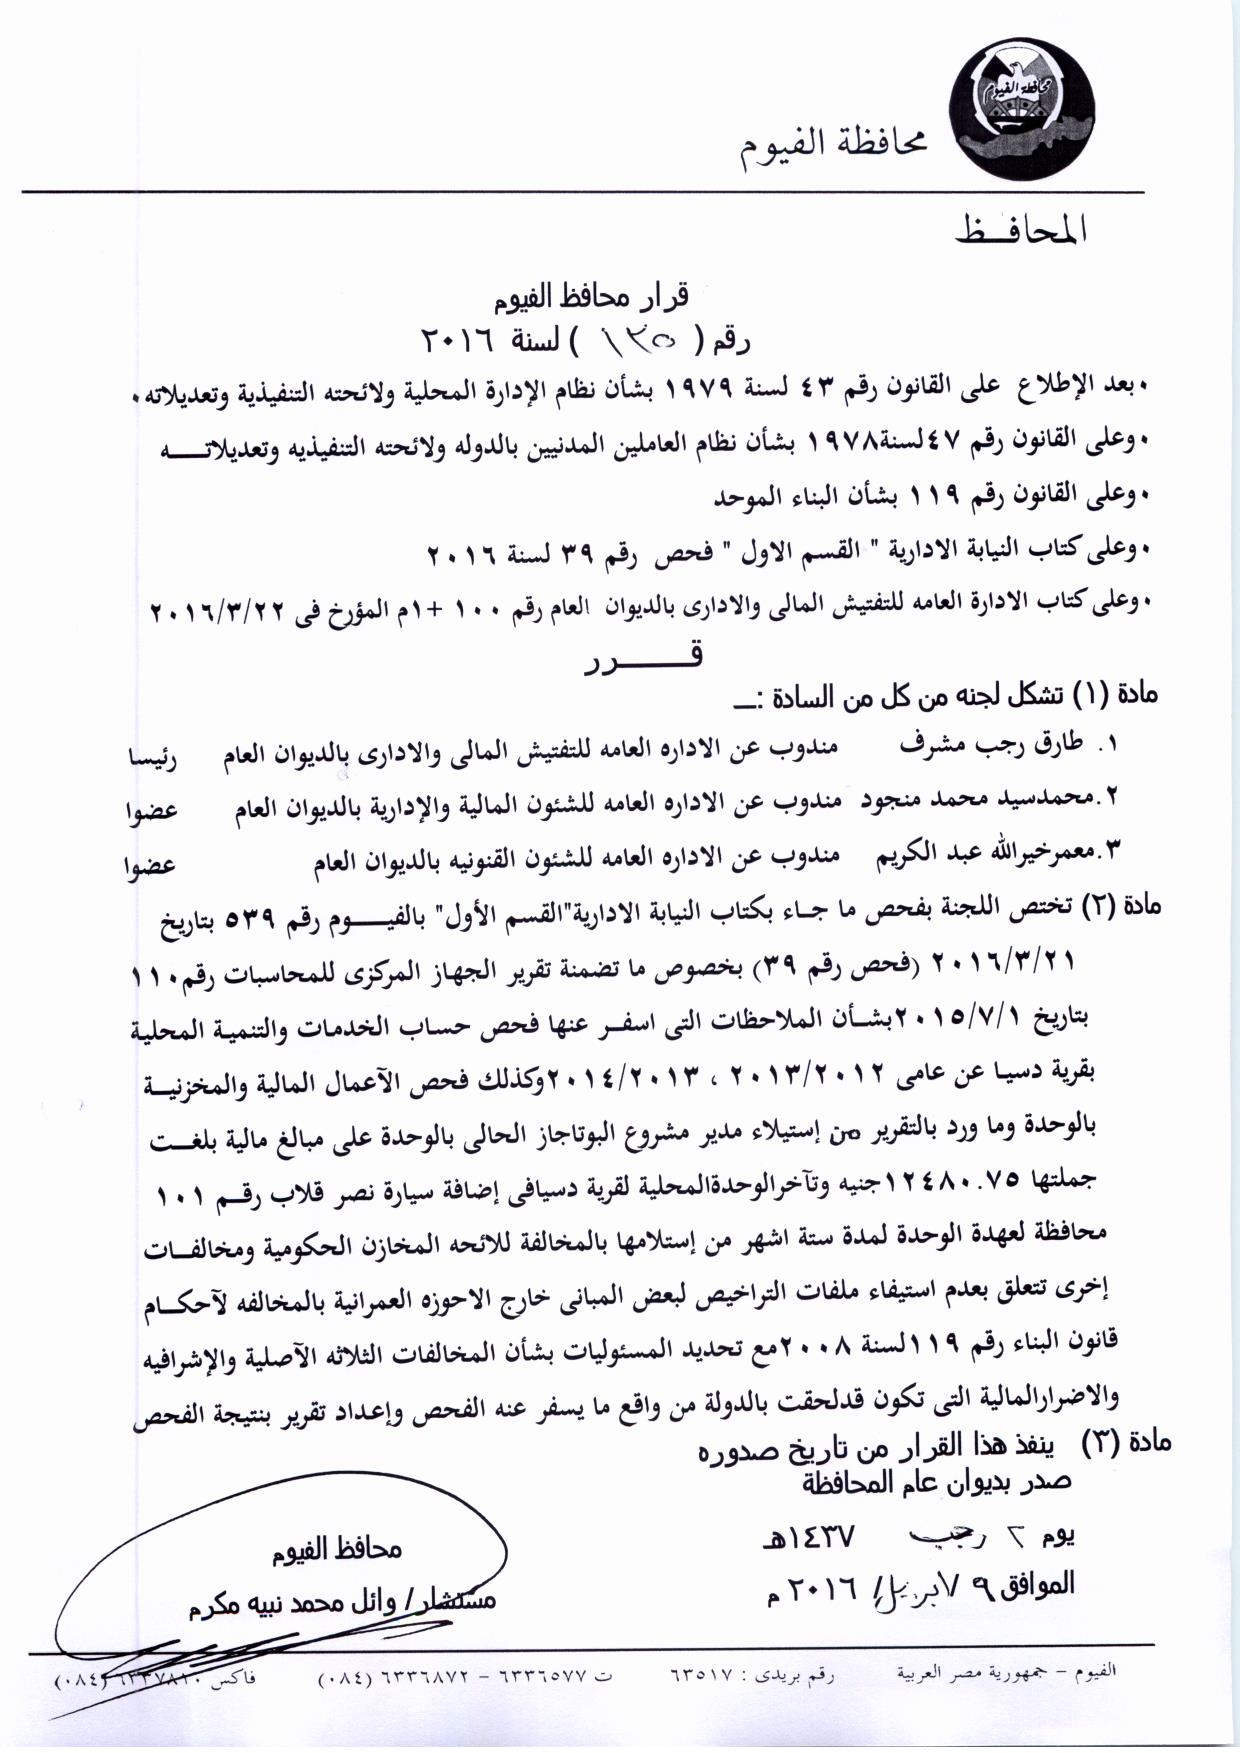 محافظة الفيوم
محافظة الفيوم
المحافـــظ
قرار محافظ الفيوم
رقم ( ١٣٥ ) لسنة ٢٠١٦
• بعد الإطلاع على القانون رقم ٤٣ لسنة ١٩٧٩ بشأن نظام الإدارة المحلية ولائحته التنفيذية وتعديلاته •
• وعلى القانون رقم ٤٧لسنة١٩٧٨ بشأن نظام العاملين المدنيين بالدوله ولائحته التنفيذيه وتعديلاتـــــه
• وعلى القانون رقم ١١٩ بشأن البناء الموحد
• وعلى كتاب النيابة الادارية " القسم الاول " فحص رقم ٣٩ لسنة ٢٠١٦
• وعلى كتاب الادارة العامه للتفتيش المالى والادارى بالديوان العام رقم ١٠٠ +١م المؤرخ فى ٢٠١٦/٣/٢٢
قـــــــرر
مادة (١) تشكل لجنه من كل من السادة :ــ
١. طارق رجب مشرف مندوب عن الاداره العامه للتفتيش المالى والادارى بالديوان العام رئيسا
٢.محمدسيد محمد منجود مندوب عن الاداره العامه للشئون المالية والإدارية بالديوان العام عضوا
٣.معمرخيرالله عبد الكريم مندوب عن الاداره العامه للشئون القنونيه بالديوان العام عضوا
مادة (٢) تختص اللجنة بفحص ما جـاء بكتاب النيابة الادارية"القسم الأول" بالفيـــــوم رقم ٥٣٩ بتاريخ
٢٠١٦/٣/٢١ (فحص رقم ٣٩) بخصوص ما تضمنة تقرير الجهاز المركزى للمحاسبات رقم١١٠
بتاريخ ٢٠١٥/٧/١بشـأن الملاحظات التى اسفـر عنها فحص حساب الخدمات والتنمية المحلية
بقرية دسيـا عن عامى ٢٠١٣/٢٠١٢ ، ٢٠١٤/٢٠١٣وكذلك فحص الآعمال المالية والمخزنيــة
بالوحدة وما ورد بالتقرير من إستيلاء مدير مشروع البوتاجاز الحالى بالوحدة على مبالغ مالية بلغــت
جملتها ١٢٤٨٠.٧٥جنيه وتآخرالوحدةالمحلية لقرية دسيافى إضافة سيارة نصر قلاب رقــم ١٠١
محافظة لعهدة الوحدة لمدة ستة اشهر من إستلامها بالمخالفة للائحه المخازن الحكومية ومخالفــات
إخرى تتعلق بعدم استيفاء ملفات التراخيص لبعض المبانى خارج الاحوزه العمرانية بالمخالفه لآحكــام
قانون البناء رقم ١١٩لسنة ٢٠٠٨مع تحديد المسئوليات بشأن المخالفات الثلاثه الآصلية والإشرافيه
والاضرارالمالية التى تكون قدلحقت بالدولة من واقع ما يسفر عنه الفحص وإعداد تقرير بنتيجة الفحص
مادة (٣) ينفذ هذا القرار من تاريخ صدوره
صدر بديوان عام المحافظة
يوم ٢ رجب ١٤٣٧هـ
الموافق ٩ /ابريل/ ٢٠١٦ م
محافظ الفيوم
مستشار/ وائل محمد نبيه مكرم
الفيوم - جمهورية مصر العربية رقم بريدى : ٦٣٥١٧ ت ٦٣٣٦٥٧٧ - ٦٣٣٦٨٧٢ (٠٨٤) فاكس ٦٣٣٧٨١٠ (٠٨٤)